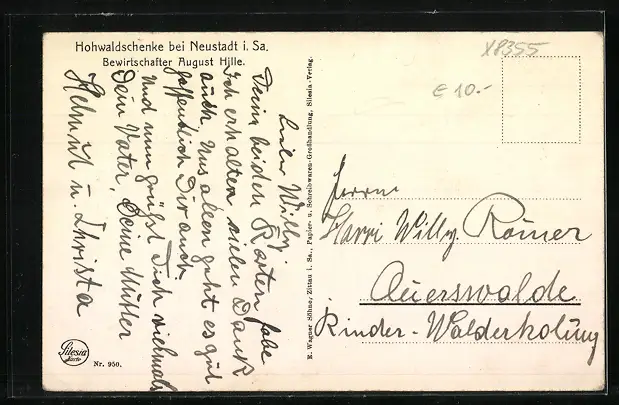 Hohwaldschenke bei Neustadt i. Sa.
Bewirtschafter August Hille.
Lieber Willy.
Deine beiden Karten habe
ich erhalten vielen Dank
auch. Uns allen geht es gut
hoffentlich Dir auch.
Und nun grüßt Dich vielmals
Dein Vater, Deine Mutter
Helmut u. Christa
Silesia
Karte
Nr. 950.
R. Wagner Söhne, Zittau i. Sa., Papier- u. Schreibwaren-Großhandlung, Silesia-Verlag.
X8355
€ 10.-
Herrn
Harri Willy. Römer
Auerswalde
Kinder-Walderholung